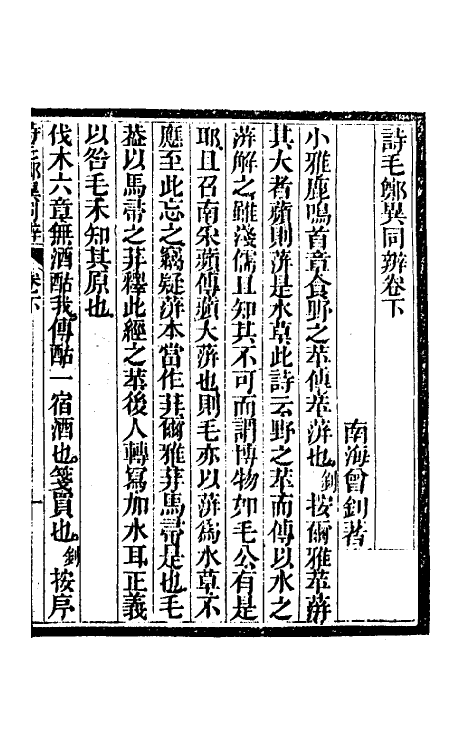 詩毛鄭異同辨卷下
南海曾釗著
小雅鹿鳴首章食野之苹傳苹蓱也釗按爾雅苹蓱
其大者蘋則蓱是水草此詩云野之苹而傳以水之
蓱解之雖淺儒且知其不可而謂博物如毛公有是
耶且召南采蘋傳蘋大蓱也則毛亦以蓱為水草不
應至此忘之竊疑蓱本當作荓爾雅荓馬帚是也毛
葢以馬帚之荓釋此經之苹後人轉寫加水耳正義
以咎毛未知其原也
伐木六章無酒酤我傳酤一宿酒也箋買也釗按序
詩毛鄭異同辨 卷下 一